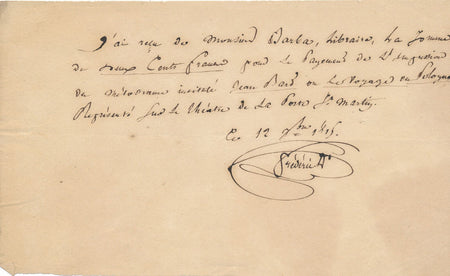 J'ai reçu de Monsieur Barba, Libraire, La Somme
de deux Cents francs pour le Payement de L'Impression
du mélodrame intitulé Jean Bart ou le Voyage en Pologne
Représenté Sur le théâtre de La Porte St Martin.
Ce 12 9bre 1815.
Frédéric